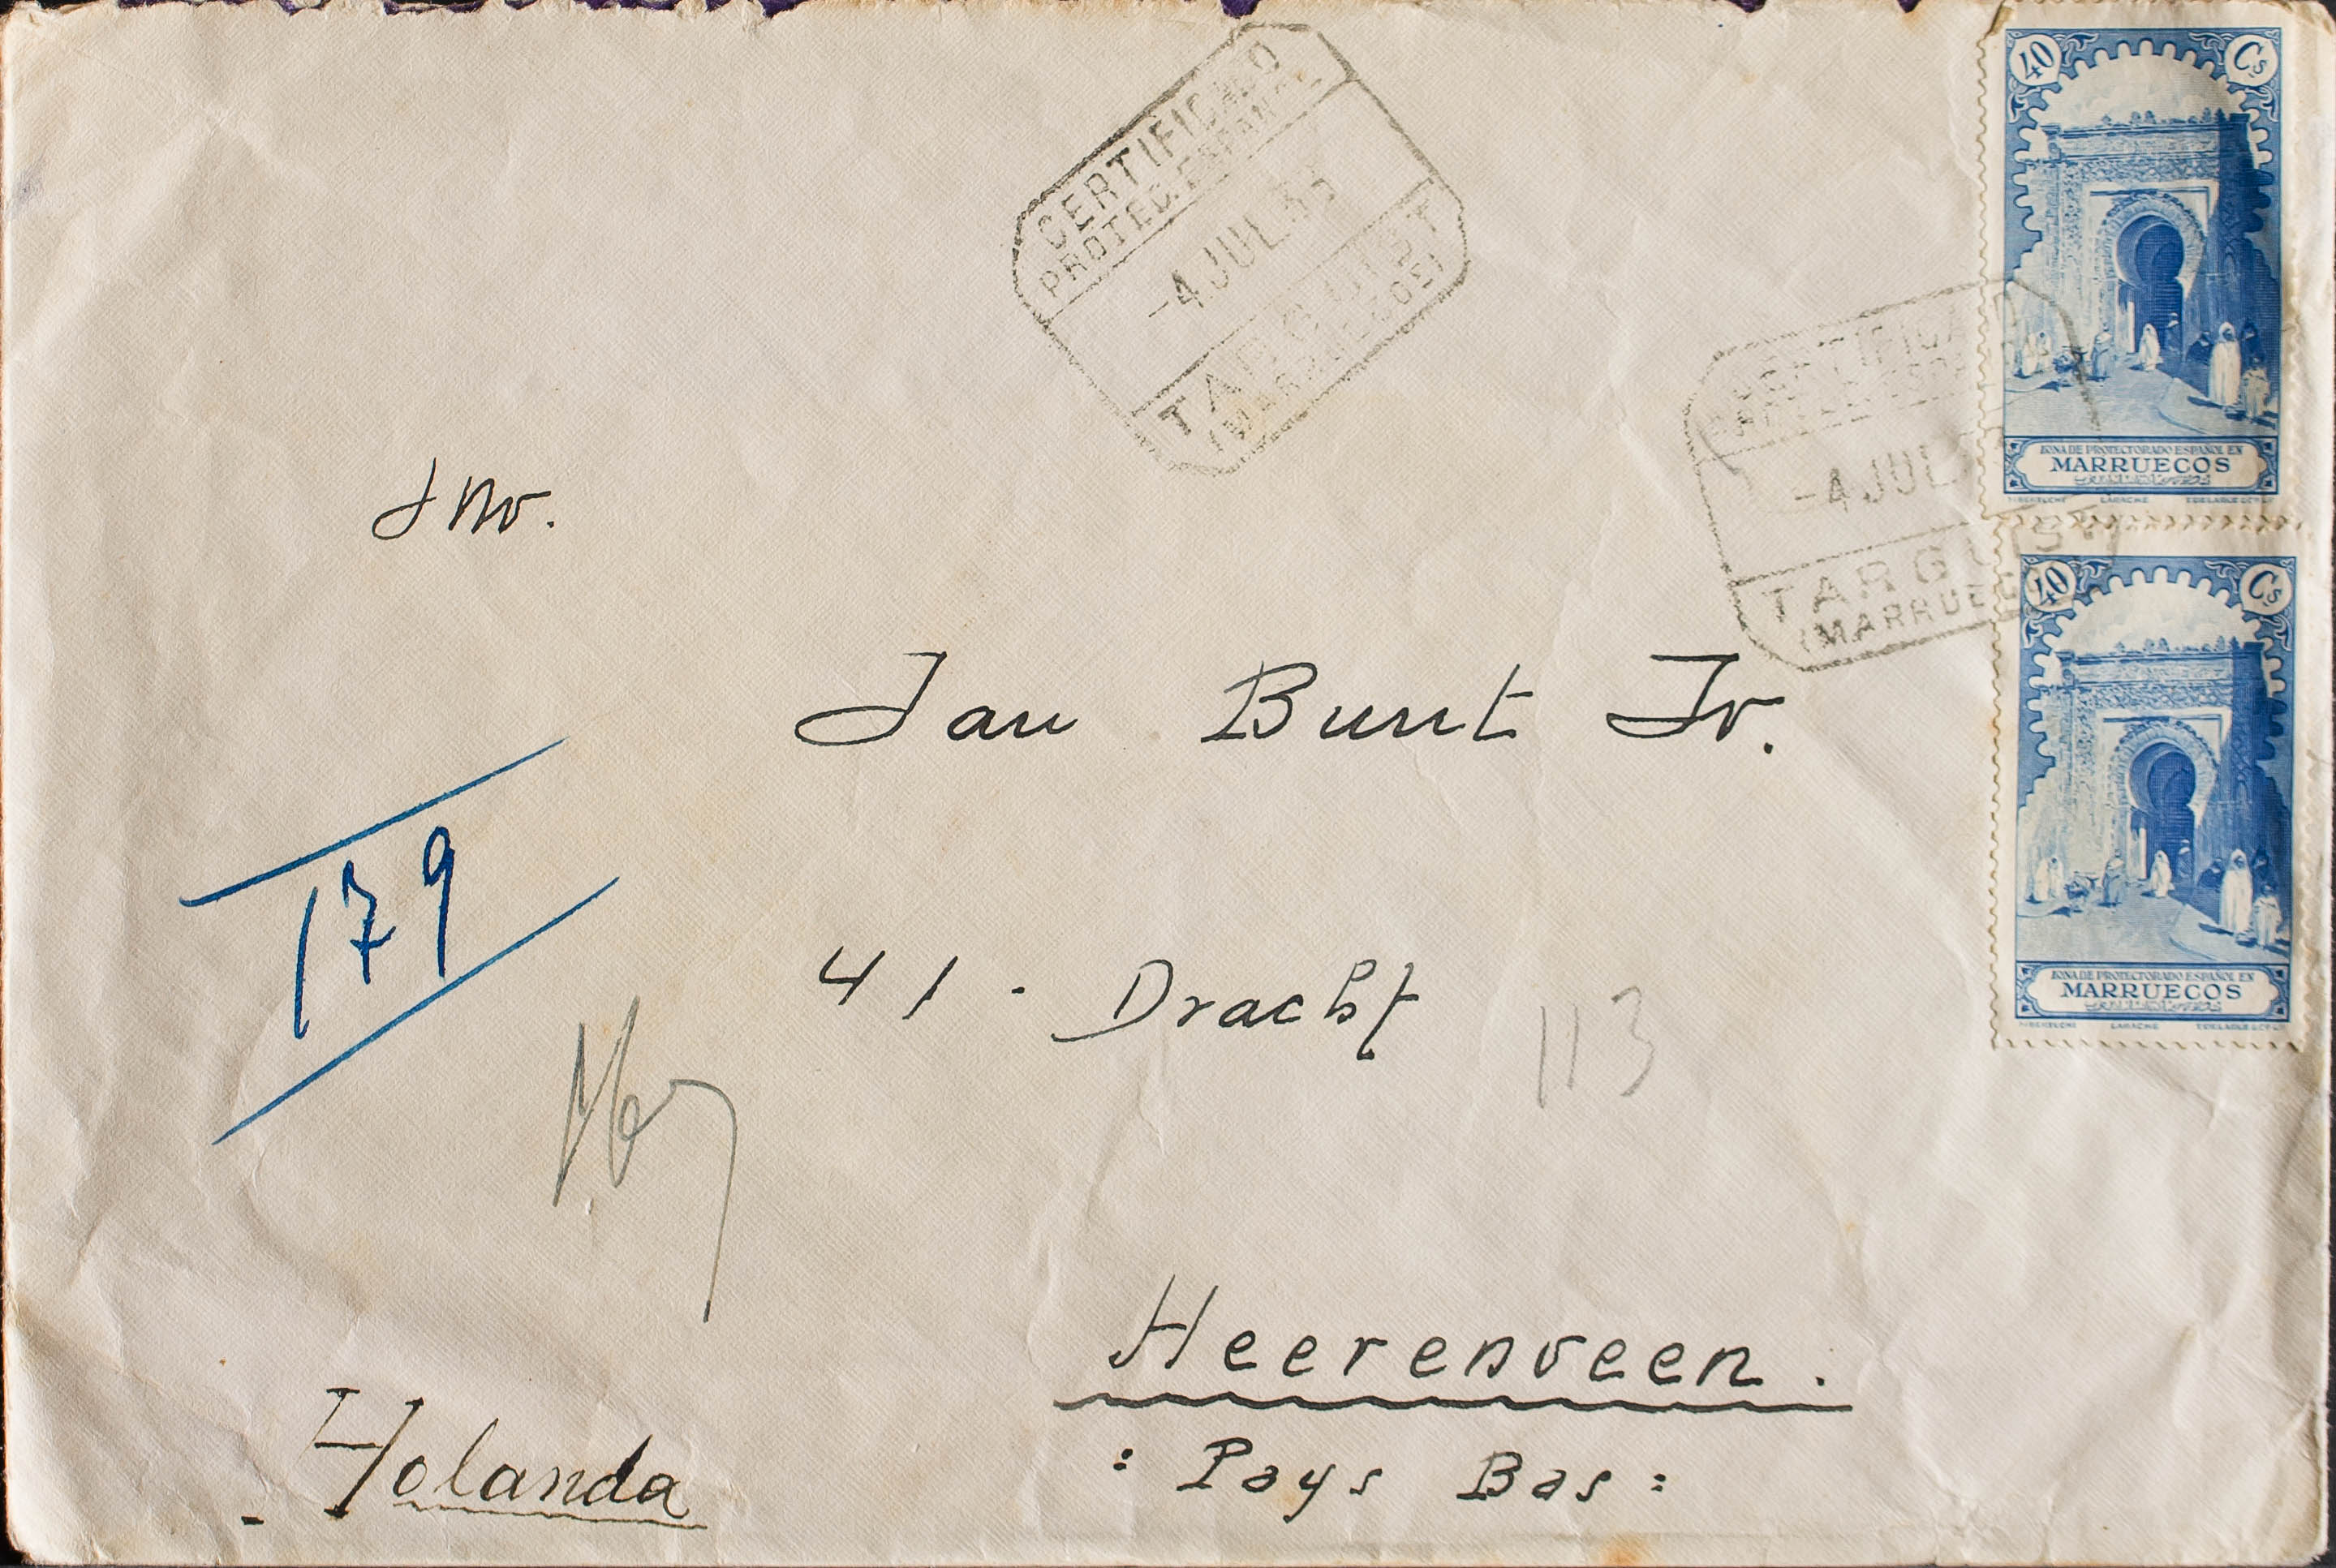 CERTIFICADO
PROTEC. ESPAÑOL
-4 JUL
TARGUIST
(MARRUECOS)
40 Cs
ZONA DE PROTECTORADO ESPAÑOL EN
MARRUECOS
LARACHE
CERTIFICADO
-4 JUL
TARGUIST
(MARRUECOS
40 Cs
ZONA DE PROTECTORADO ESPAÑOL EN
MARRUECOS
LARACHE
Jan Bunt Jr.
179
41 - Dracht
113
Heerenveen.
Holanda
: Pays Bas :